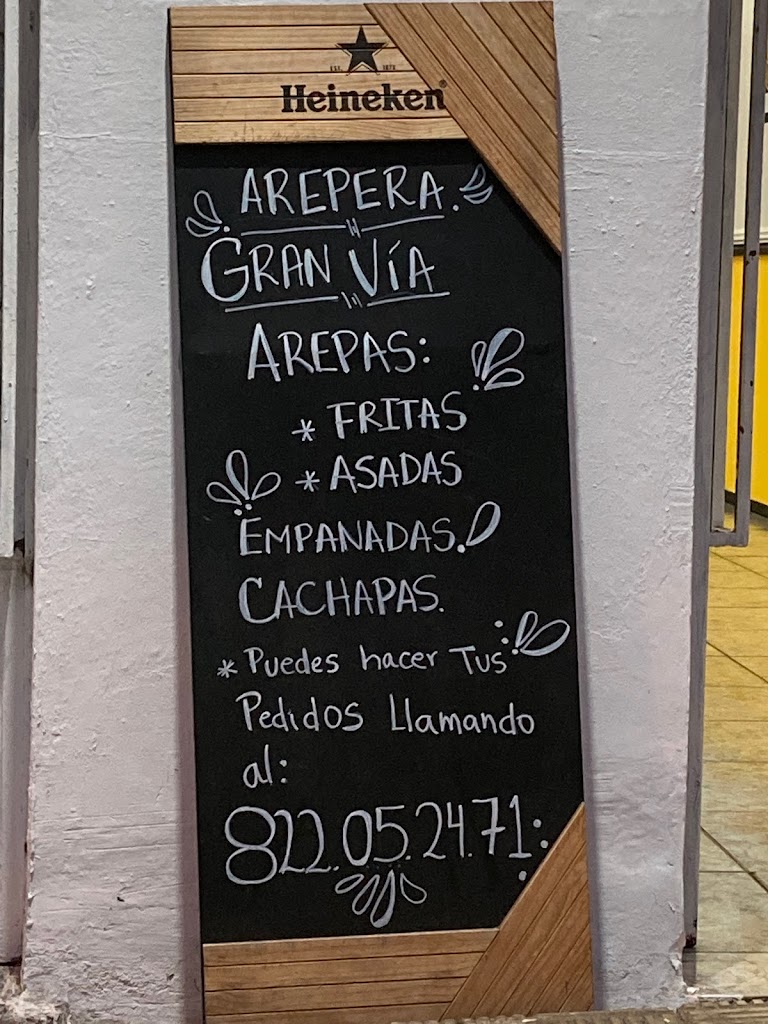 EST. 1873
Heineken®
AREPERA.
GRAN VÍA
AREPAS:
* FRITAS
* ASADAS
EMPANADAS.
CACHAPAS.
* Puedes hacer Tus
Pedidos Llamando
al:
822.05.24.71